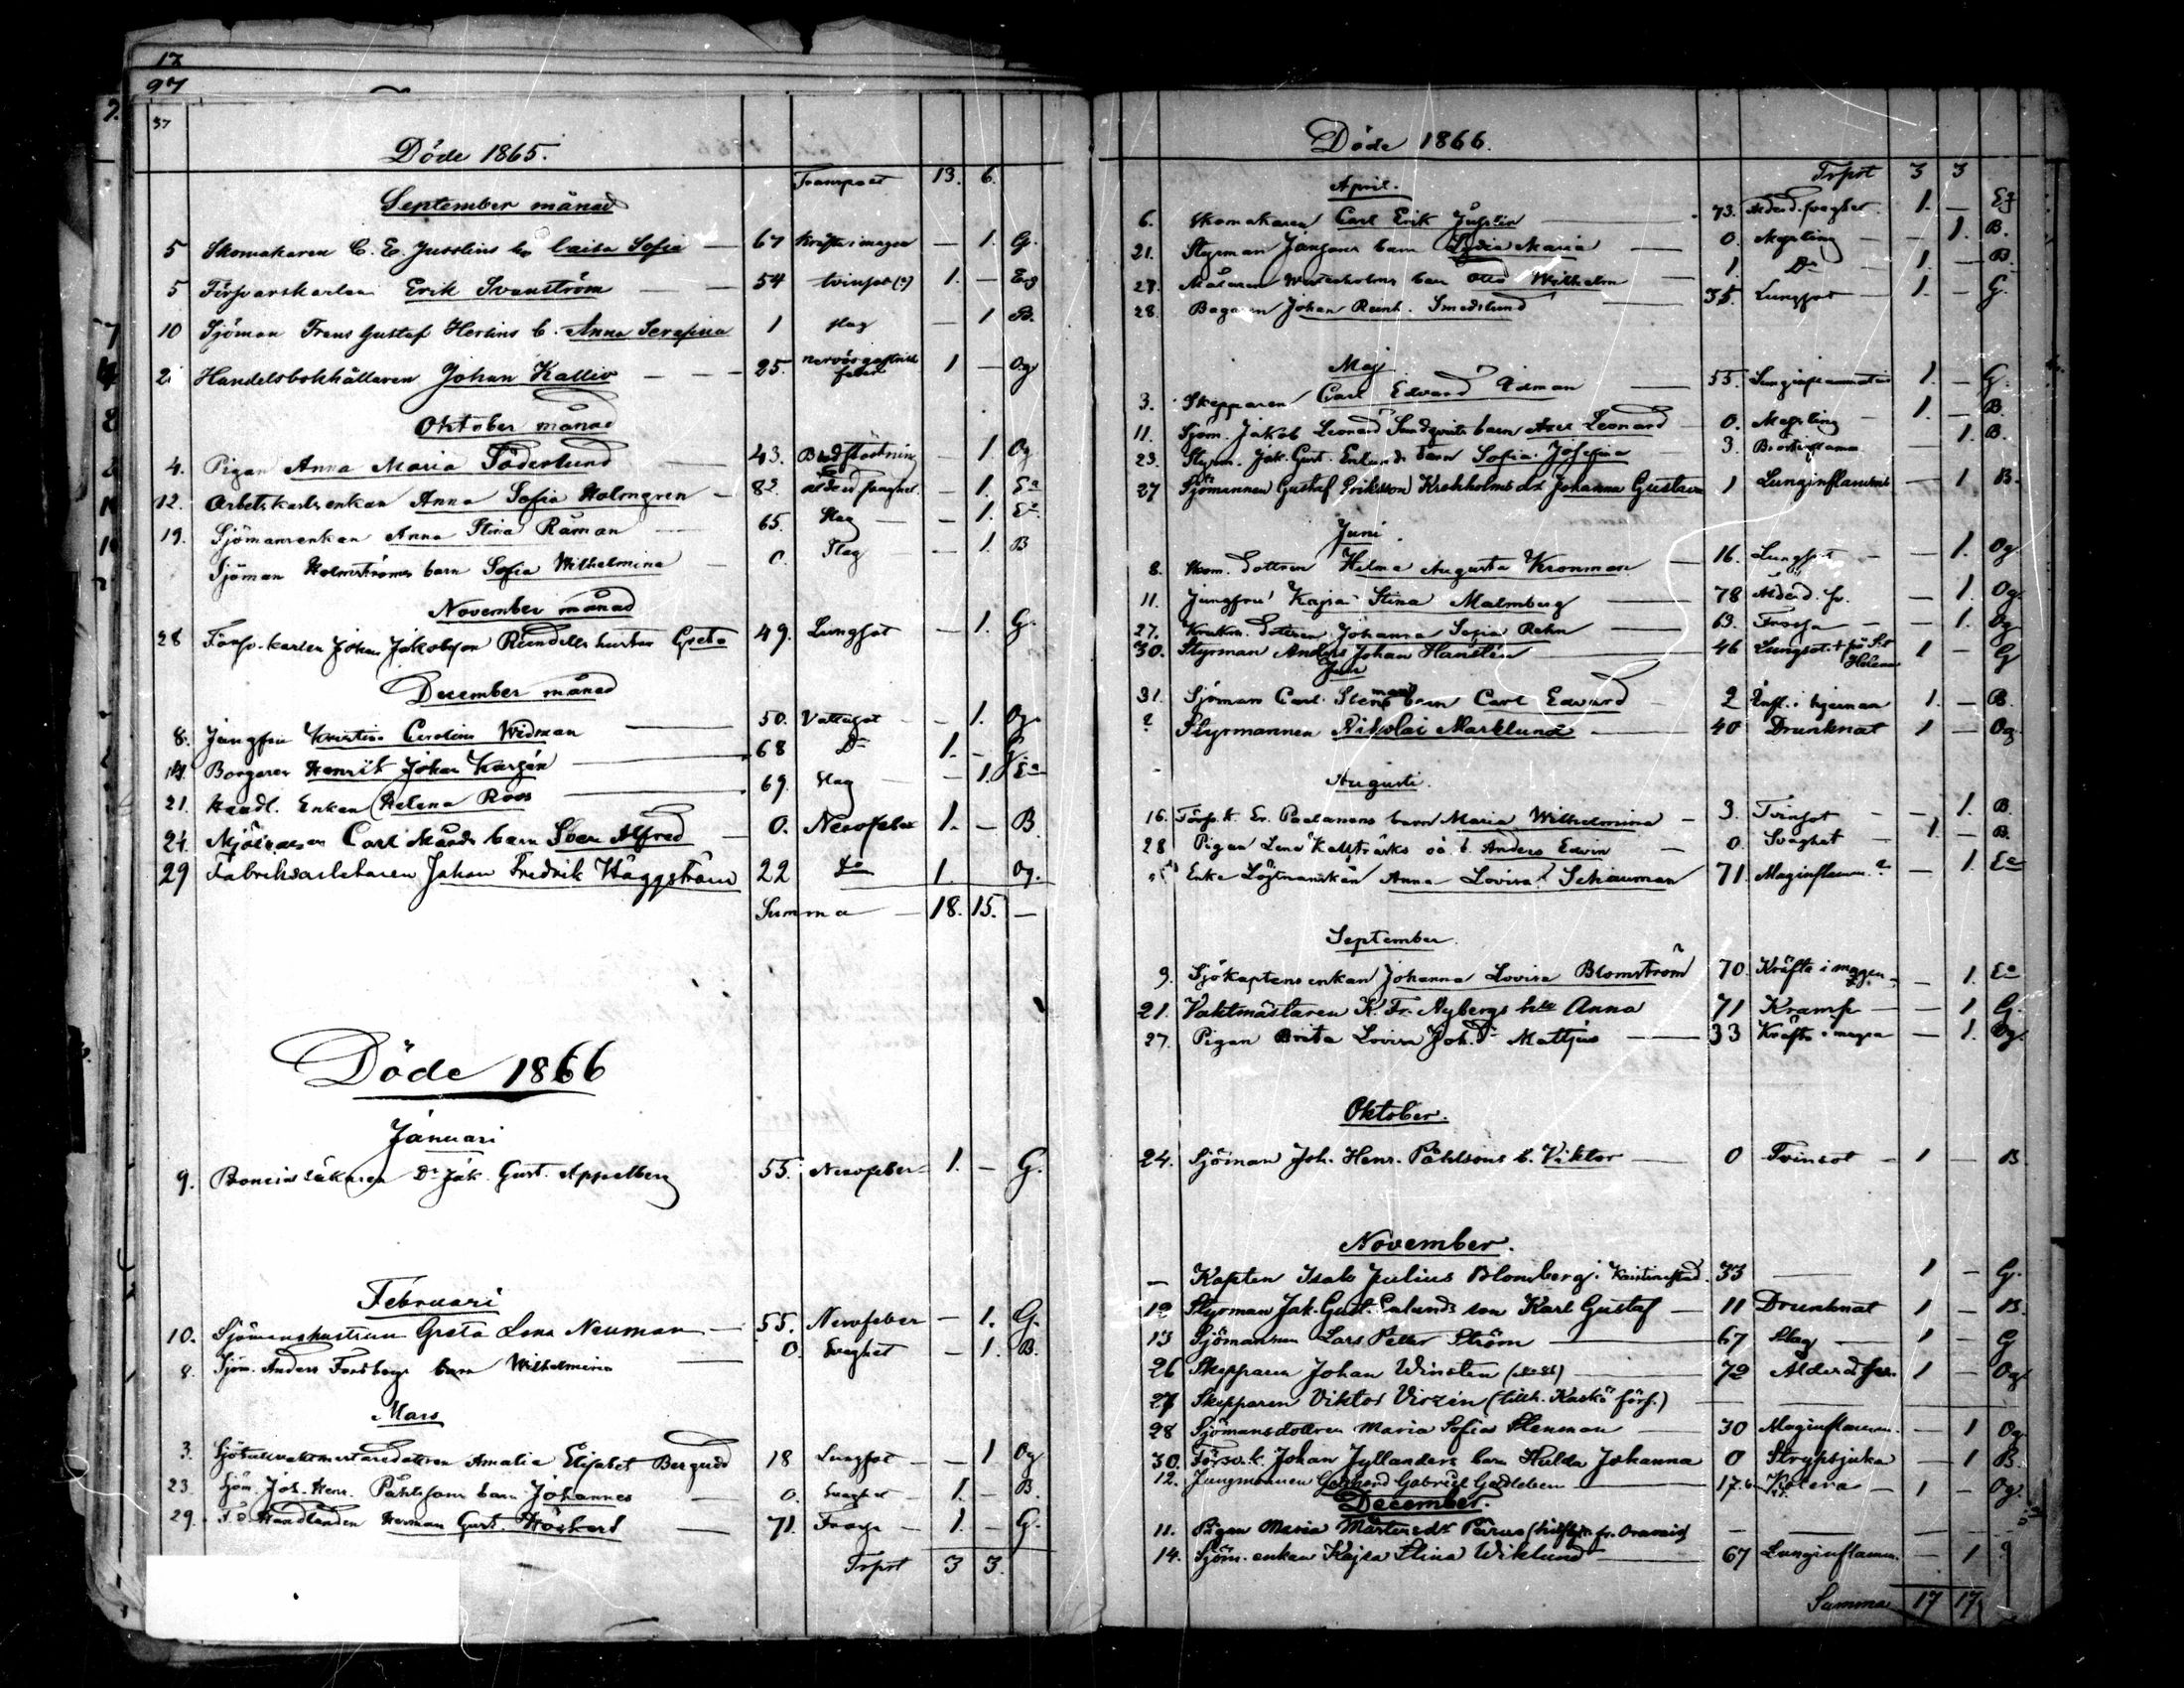 17
97
37
Döde 1865.
Transport 13. 6.
September månad
5 Skomakaren C. E. Jusslins h. Caisa Sofia — 67 kräfta i magen — 1. G.
5 Försvarskarlen Erik Svanström — 54 tvinsot (?) 1. — Eg
10 Sjöman Frans Gustaf Herlins b. Anna Serafina 1 slag — 1 B.
21 Handelsbokhållaren Johan Kallio — 25. nervös gastrisk feber 1 — Og
Oktober månad
4. Pigan Anna Maria Söderlund 43. Blodstörtning — 1 Og
12. Arbetskarlsenkan Anna Sofia Holmgren — 82 ålderd. svaghet — 1. Ea
19. Sjömansenkan Anna Stina Råman — 65. Slag — 1. Ea
Sjöman Holmströms barn Sofia Wilhelmina — 0. Slag — 1. B
November månad
28 Försv. karlen Johan Jakobsson Rundells hustru Greta 49. Lungsot — 1. G.
December månad
8. Jungfru Kristina Carolina Widman — 50. Vattusot — 1. Og.
14. Borgaren Henrik Johan Kasén — 68 Do 1. — G.
21. Handl. Enkan Helena Roos — 69. Slag — 1. Ea
24. Mjölnaren Carl Maads barn Sven Alfred — 0. Nervfeber 1. — B
29 Fabriksarbetaren Johan Fredrik Häggström 22 Do 1. Og.
Summa — 18. 15. —
Döde 1866
Januari
9. Provinsialläkaren Dr Jak. Gust. Appelberg 55. Nervfeber 1. — G.
Februari
10. Sjömanshustrun Greta Lena Neuman — 55. Nervfeber — 1. G.
8. Sjöm. Anders Forsbergs barn Wilhelmina — 0. Svaghet — 1. B.
Mars
3. Sjötullvaktmästaredottren Amalia Elisabet Bergudd 18 Lungsot — 1 Og
23. Sjöm. Joh. Henr. Påhlssons barn Johannes — 0. Svaghet — 1. — B.
29. F. d. Handlanden Herman Gust. Höckert — 71. Frossa — 1. — G.
Trpst 3 3.
Döde 1866.
Trpst 3 3
April.
6. Skomakaren Carl Erik Jusslin — 73. Ålderd. svaghet. 1. — Eg
21. Styrman Jansons barn Lydia Maria — 0. Messling — 1. B.
27. Målaren Westerholms barn Otto Wilhelm — 1. Do 1. — B.
28. Bagaren Johan Reinh. Smedslund — 35. Lungsot — 1. — G.
Maj
3. Skepparen Carl Edvard Edman — 55. Lunginflammation 1. — G.
11. Sjöm. Jakob Leonard Sundqvists barn Axel Leonard — 0. Messling — 1. — B.
23. Styrm. Jak. Gust. Enlunds barn Sofia Josefina 3. — 1. B.
27 Sjömannen Gustaf Eriksson Krokholms dt Johanna Gustava 1 Lunginflamm. — 1 B.
Juni.
8. Skom. dottren Hilma Augusta Kronman — 16. Lungsot — 1. Og.
11. Jungfru Kajsa Stina Malmberg — 78 Ålderd. sv. — 1. Og.
27. Krukm. dottren Johanna Sofia Rehn — 63. Frossa — 1. Og
30. Styrman Anders Johan Hansten — 46 Lungsot. + på S:t Helena 1 — G
Juli
31. Sjöman Carl Stenmans barn Carl Edvard — 2 Infl. i hjernan 1. — B.
? Styrmannen Nikolai Marklund — 40 Drunknat 1 — Og
Augusti.
16. Försv. k. Er. Paulanens barn Maria Wilhelmina — 3. Tvinsot — 1. B.
28 Pigan Lena Kallträsks oä. b. Anders Edvin — 0. Svaghet — 1. — B.
Enke Löjtnanskan Anna Lovisa Schauman 71. Maginflamm.? — 1. Ea
September.
9. Sjökaptensenkan Johanna Lovisa Blomström 70. Kräfta i magen — 1. Ea
21. Vaktmästaren K. Fr. Nybergs hu Anna 71 Kramp — 1 G.
27. Pigan Brita Lovisa Joh. dr Mattjus — 33 Kräfta i magen — 1. Og.
Oktober.
24. Sjöman Joh. Henr. Påhlsons b. Viktor — 0 Tvinsot — 1 — B
November.
— Kapten Isak Julius Blomberg i Kristinestad. 33 — 1 — G.
12 Styrman Jak. Gust. Enlunds son Karl Gustaf — 11 Drunknat 1 — B.
13 Sjömannen Lars Petter Ström — 67 Slag — 1 — G
26 Skepparen Johan Winsten — 72 Ålderd. sv. 1 — Og.
27 Skepparen Viktor Virzén (tillh. Kaskö förs.) —
28 Sjömansdottren Maria Sofia Stenman — 30 Maginflamm. — 1 Og
30. Försv. k. Johan Jyllanders barn Hulda Johanna 0 Strypsjuka — 1 B.
12. Jungmannen Gerhard Gabriel Gadleben — 17. Kolera — 1 — Og.
December.
11. Pigan Maria Mårtensdr Pärus fr. Oravais — — —
14. Sjöm. enkan Kajsa Stina Wiklund — 67 Lunginflamm. — 1 ?
Summa 17 17